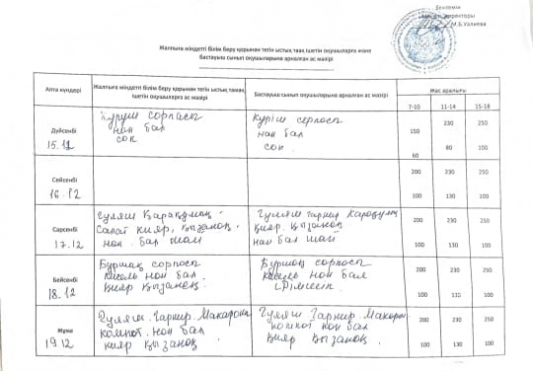 Бекітемін
Мектеп директоры
М.Б. Халиева
Жалпыға міндетті білім беру қорынан тегін ыстық тамақ ішетін оқушыларға және
бастауыш сынып оқушыларына арналған ас мәзірі
Апта күндері
Жалпыға міндетті білім беру қорынан тегін ыстық тамақ ішетін оқушыларға ас мәзірі
Бастауыш сынып оқушыларына арналған ас мәзірі
Жас аралығы
7-10 11-14 15-18
Дүйсенбі
15.12
Күріш сорпасы
нан бал
сок
Күріш сорпасы
нан бал
сок
150 230 250
60 80 100
Сейсенбі
16.12
200 230 250
100 130 100
Сәрсенбі
17.12
Гуляш Қарақұмық
Салат кияр, қызанақ,
нан. бал шай
Гуляш гарнир
кияр қызанақ
нан бал шай
200 230 250
100 130 100
Бейсенбі
18.12
Бұршақ сорпасы
кисель нан бал
кияр қызанақ
Бұршақ сорпасы
кисель нан бал
200 230 250
100 130 100
Жұма
19.12
Гуляш. Гарнир. Макарон
компот. нан бал
кияр қызанақ
Гуляш Гарнир. Макарон
компот нан бал
кияр қызанақ
200 230 250
100 130 100